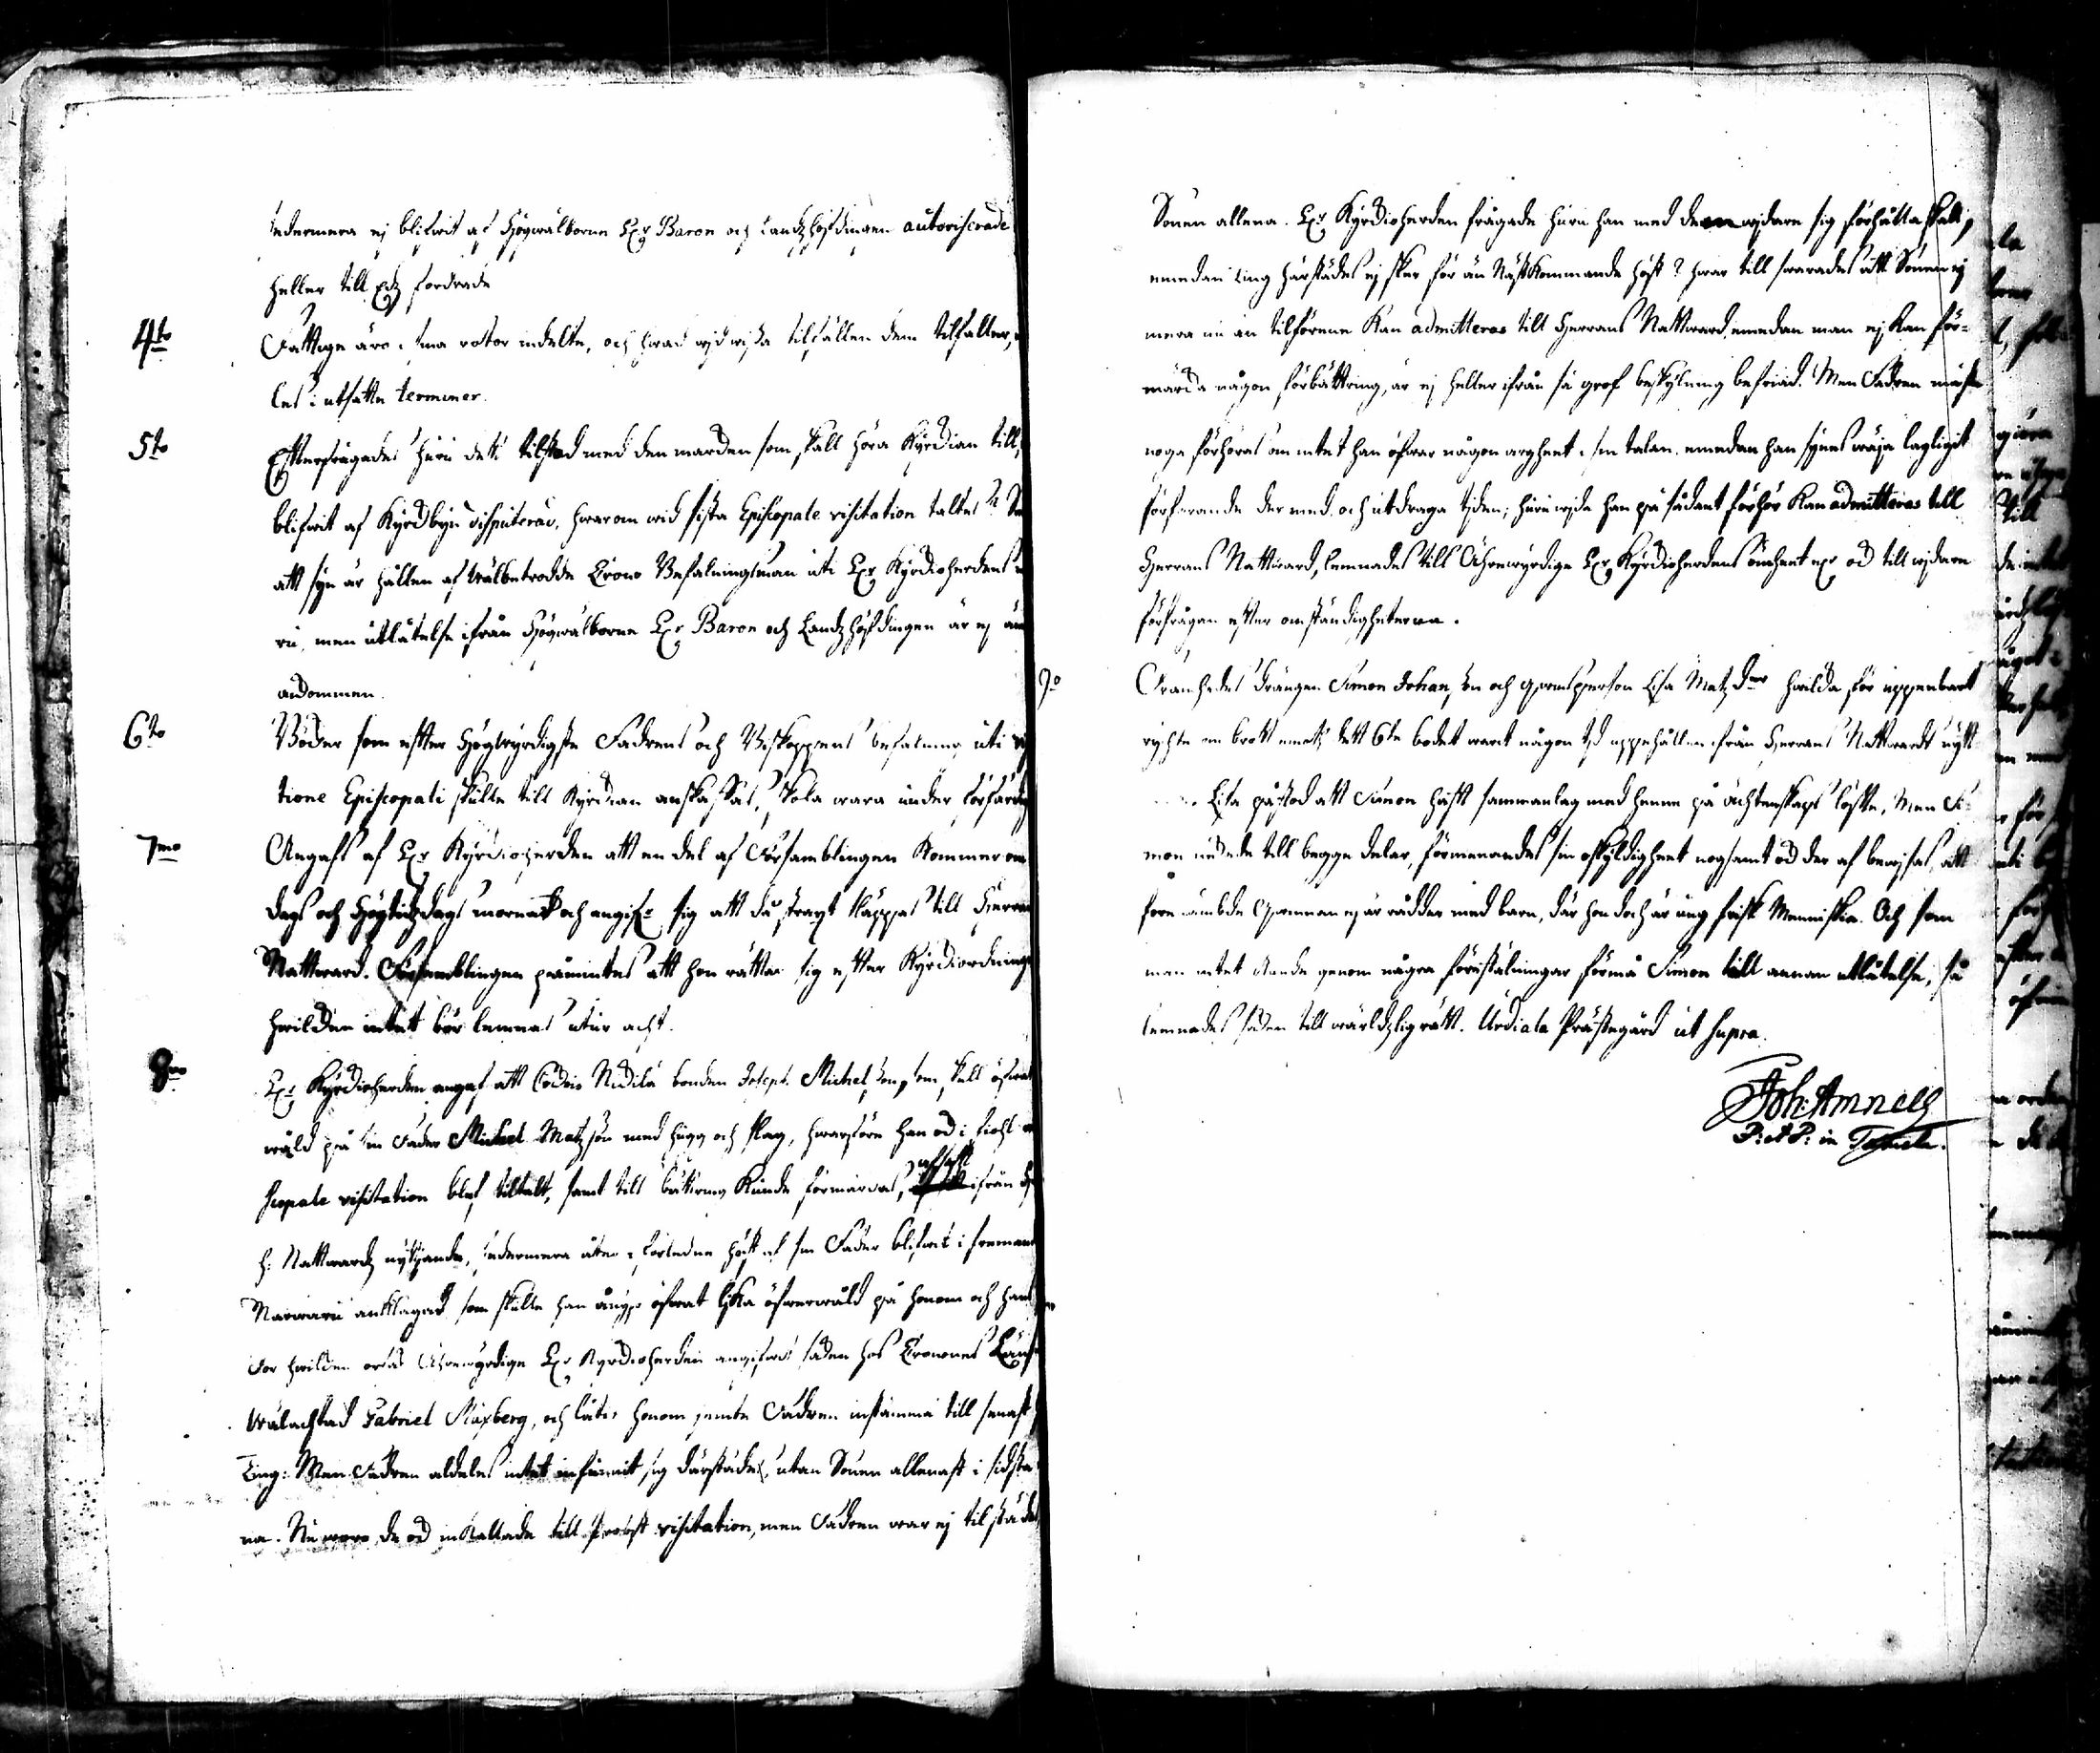 sedermera ej blifwit af Högwälborne Hr Baron och Landzhöfdingen autoriserade
heller till Edz fordrade
4to Fattige äro i sina rotor indelte, och hwad wid wissa tilfällen dem tilfaller,
les i utsatte terminer.
5to Efterfrågades huru dett tilstod med den marcken som skall höra Kyrckian till,
blifwit af Kyrckbyn disputerad, hwarom wid sista Episcopale visitation taltes
att syn är hållen af Wälbetrodde Crono Befalningsman uti Hr Kyrckioherdens
ru, men utlåtelse ifrån Högwälborne Hr Baron och Landzhöfdingen är ej än
ankommen.
6to Böcker som efter Högwyrdigste Fadrens och Biskoppens befalning uti vi
tione Episcopali skulle till Kyrckian anskaffas, skola wara under förfärdig
7mo Angafs af Hr Kyrckioherden att en del af Församblingen kommer om
dags och Högtidzdags mornar och angifr sig att då straxt släppas till Herrans
Nattward. Församblingen påmintes att hon rättar sig efter Kyrckioordningen
hwilcken intet bör lemnas utur acht.
8vo Hr Kyrckioherden angaf att bonden Joseph Michelsson, som skall öfwat
wåld på sin Fader Michel Matzson med hugg och slag, hwarföre han ock i fiohl
scopale visitation blef tiltalt, samt till bättring kunde förmärckas, afhölt ifrån
H. Nattwardz nyttjande, sedermera åter i förledne höst af sin Fader blifwit i
anklagad som skulle han ånyo öfwat lika öfwerwåld på honom och hans
För hwilcken orsak Ährewyrdige Hr Kyrckioherden angifwit saken hos Cronones Länsman
Wälachtad Gabriel Maxberg, och låtit honom jemte Fadren instämma till senast
Ting: Men Fadren aldeles intet infunnit sig därstädes, utan Sonen allenast i sidsta
na. Nu woro de ock inkallade till Probst visitation, men Fadren war ej tilstädes
Sonen allena. Hr Kyrckioherden frågade huru han med dem widare sig förhålla skall,
emedan Ting härstädes ej sker för än Nästkommande höst? hwar till swarades att Sonen ej
mera nu än tilförene kan admitteras till Herrans Nattward, emedan man ej kan för-
märcka någon förbättring, är ej heller ifrån så grof beskylning befriad. Men Fadren måste
noga förhöras om intet han öfwar någon arghet i sin talan, emedan han synes wäja lagligit
förfarande der med och utdraga tiden; huru wida han på sådant förhör kan admitteras till
Herrans Nattward, lemnades till Ährewyrdige Hr Kyrckioherdens ömhet ock till widare
förfrågan efter omständigheterna.
9o Framhades drängen Simon Johansson och qwinsperson Lisa Matzdotter hwilcka för uppenbart
rychte om brott emot dett 6te budet warit någon tid uppehållne ifrån Herrans Nattwardz nytt-
Lisa påstod att Simon haft sammanlag med henne på ächtenskaps löfte, Men Si-
mon nekade till begge delar, förmenandes sin oskyldighet nogsamt ock der af bewisas, att
förenämbde Qwinnan ej är rådder med barn, där hon doch är ung frisk Menniskia. Och som
man intet kunde genom några föreställningar förmå Simon till annan utlåtelse, så
lemnades saken till wärldzlig rätt. Urdiala Prästegård ut supra.
Joh: Amnelle
P: et P: in Tyrvis.